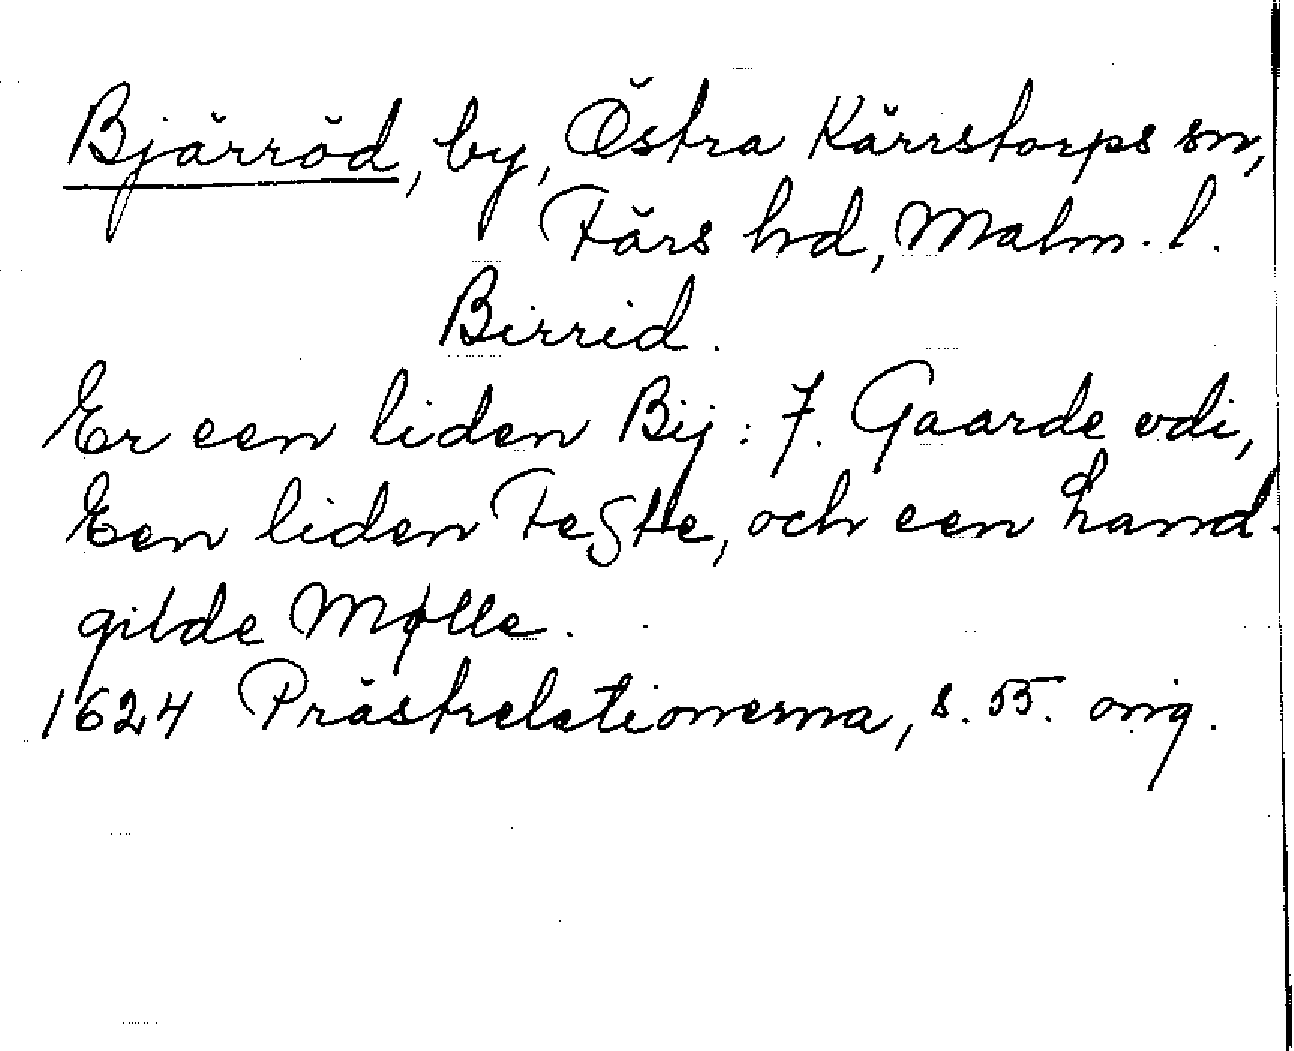 Bjärröd, by, Östra Kärrstorps sn,
Färs hd, Malm. l.
Birrid.
Er een liden Bij: 7. Gaarde vdi,
Een liden Feste, och een hand-
gilde Mølle.
1624 Prästrelationerna, s. 55. orig.